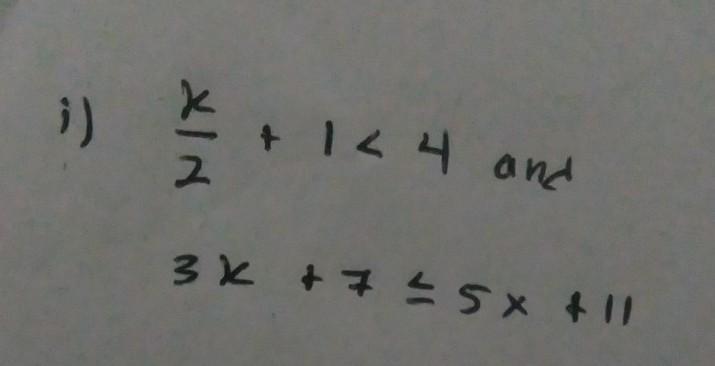 i) k/2 + 1 < 4 and
3k + 7 ≤ 5x + 11